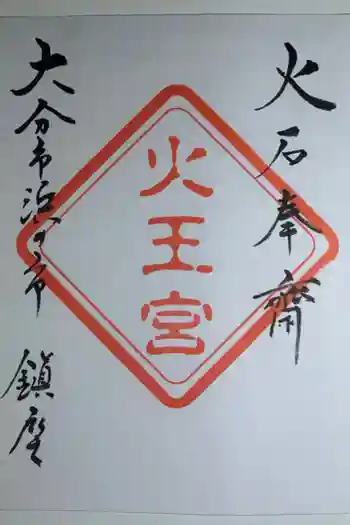 火石奉齋
火王宮
大分市浜の市
鎮座